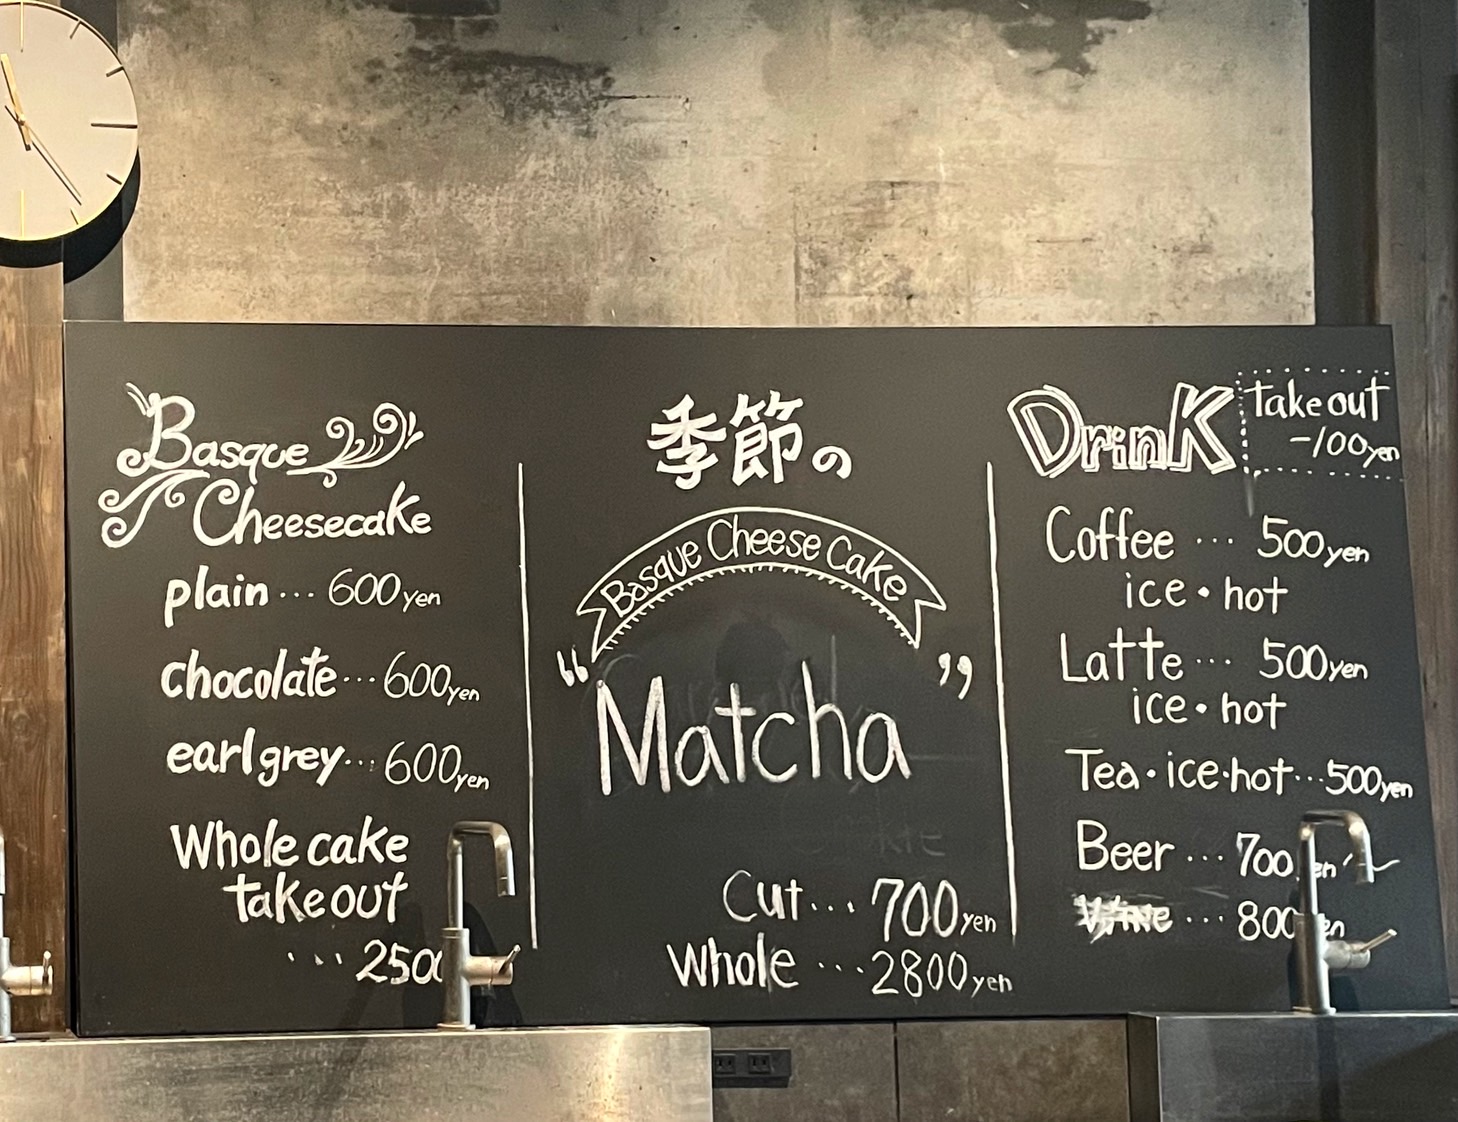 Basque
Cheesecake
plain ... 600yen
chocolate ... 600yen
earl grey ... 600yen
Whole cake
take out
... 2500
季節の
Basque Cheese Cake
“Matcha”
Cut ... 700yen
Whole ... 2800yen
DrinK
take out
-100yen
Coffee ... 500yen
ice・hot
Latte ... 500yen
ice・hot
Tea・ice・hot ... 500yen
Beer ... 700yen
Wine ... 800yen